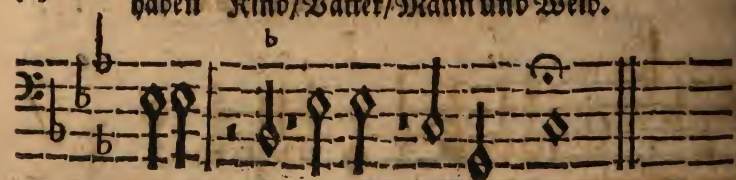 haben Kind/Vatter/Mann und Weib.